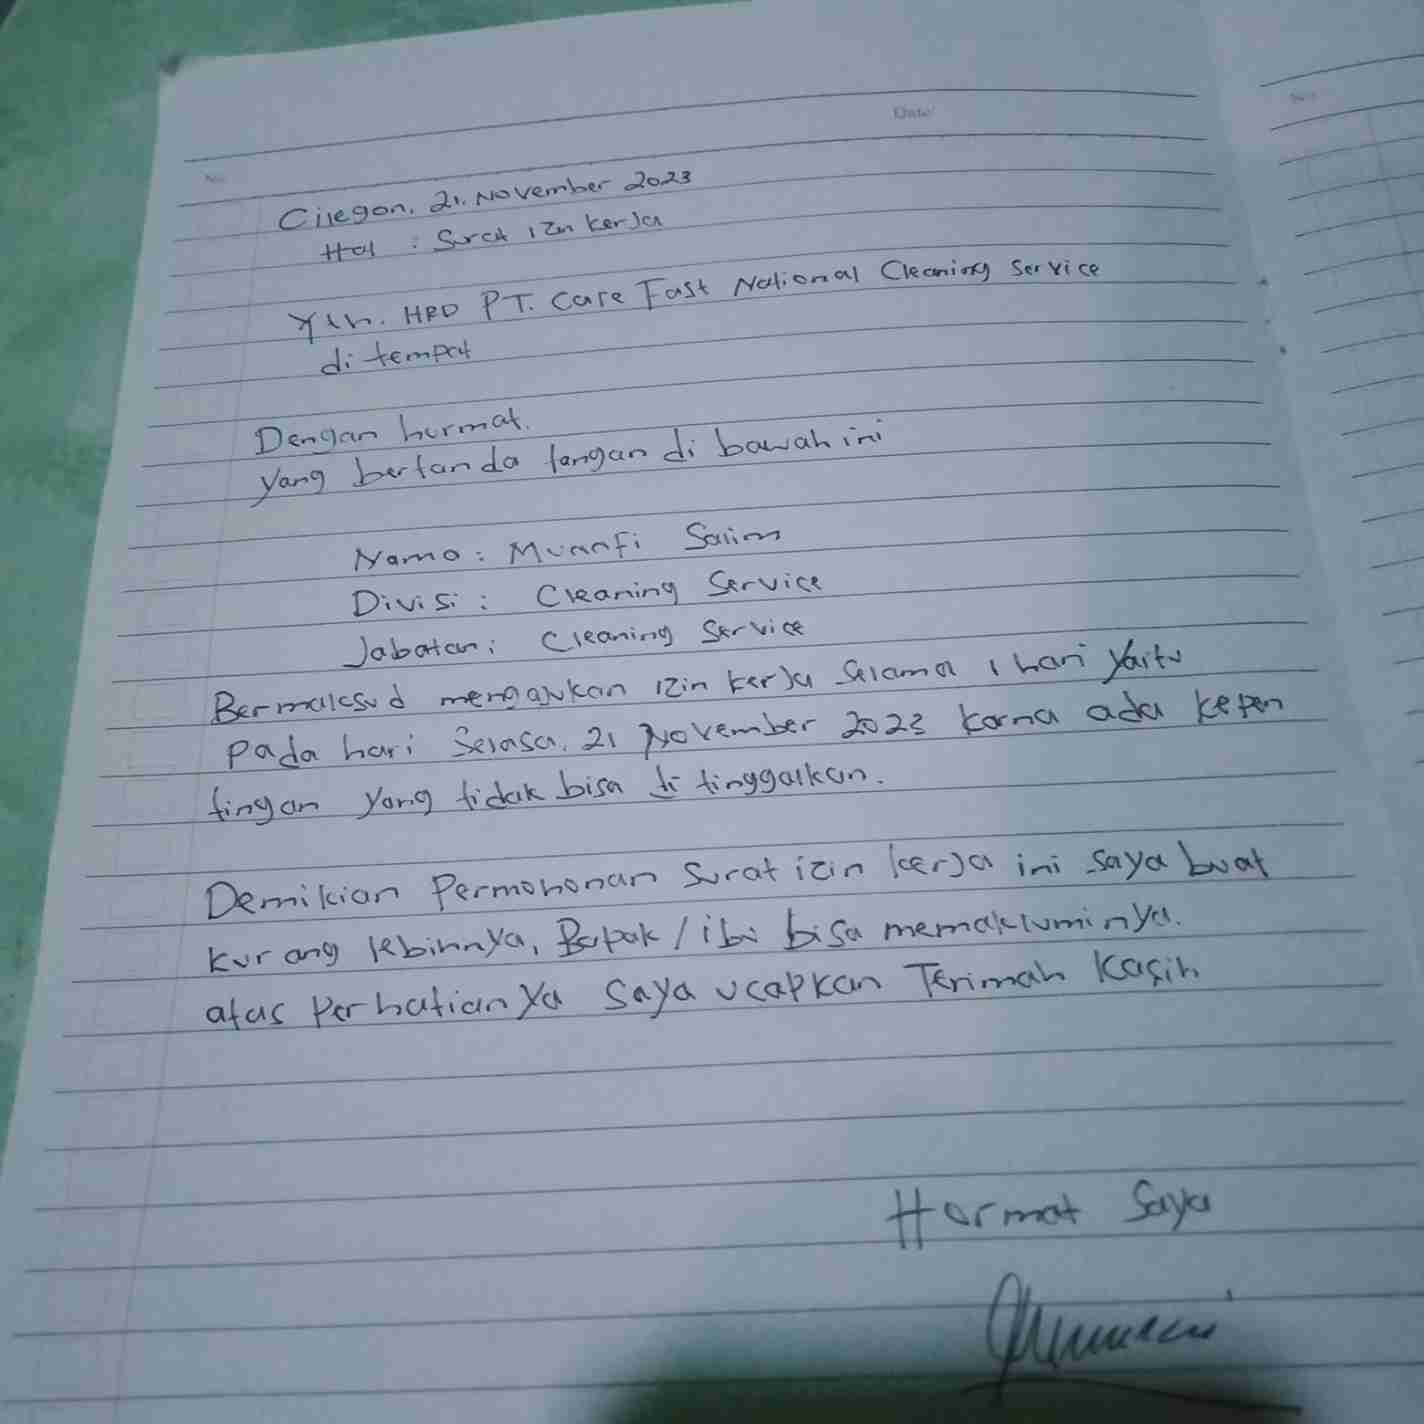 No.
Date:
Cilegon, 21, November 2023
Hal : Surat izin kerja
Yth. HRD PT. Care Fast National Cleaning Service
di tempat
Dengan hormat.
yang bertanda tangan di bawah ini
Nama : Muanfi Salim
Divisi : Cleaning Service
Jabatan : Cleaning Service
Bermaksud mengajukan izin kerja selama 1 hari yaitu
pada hari Selasa, 21 November 2023 karna ada kepen
tingan yang tidak bisa di tinggalkan.
Demikian Permohonan Surat izin kerja ini saya buat
kurang lebihnya, Bapak / ibu bisa memakluminya.
atas Perhatianya saya ucapkan Terimah Kasih
Hormat Saya